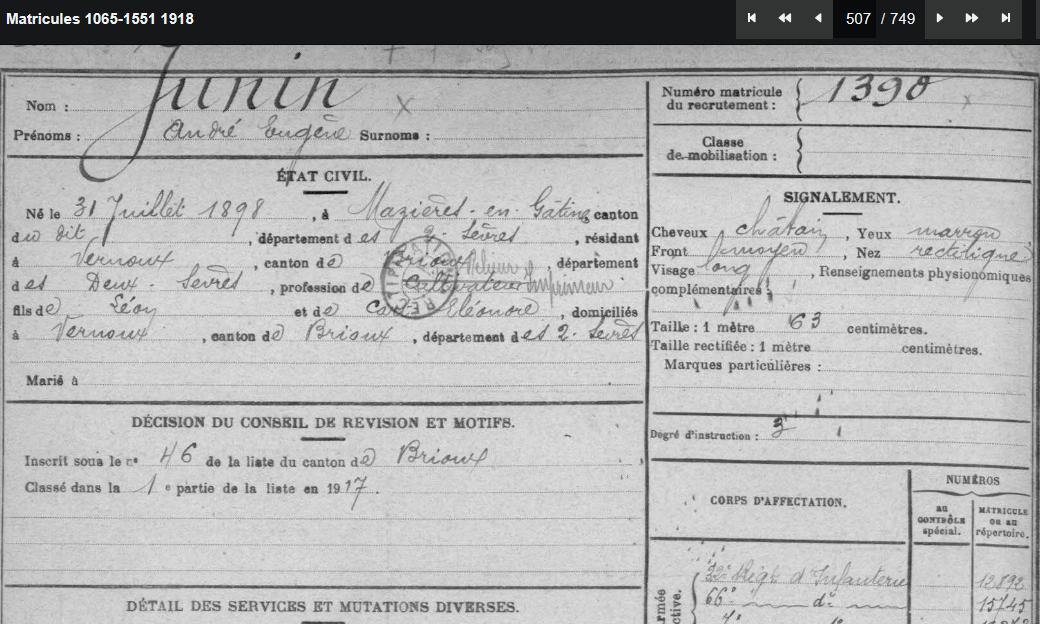 Matricules 1065-1551 1918
507 / 749
Junin
Nom :
Prénoms : André Eugène Surnoms :
Numéro matricule
du recrutement : 1398
Classe
de mobilisation :
ÉTAT CIVIL.
Né le 31 Juillet 1898, à Mazières-en-Gâtine, canton
du dit, département des 2-Sèvres, résidant
à Vernoux, canton de Brioux, département
des Deux-Sèvres, profession de Cultivateur Imprimeur
fils de Léon et de Eléonore, domiciliés
à Vernoux, canton de Brioux, département des 2-Sèvres
Marié à
SIGNALEMENT.
Cheveux châtain, Yeux marron
Front moyen, Nez rectiligne
Visage long, Renseignements physionomiques
complémentaires :
Taille : 1 mètre 63 centimètres.
Taille rectifiée : 1 mètre centimètres.
Marques particulières :
Degré d'instruction : 3
DÉCISION DU CONSEIL DE REVISION ET MOTIFS.
Inscrit sous le n° 46 de la liste du canton de Brioux
Classé dans la 1e partie de la liste en 1917.
CORPS D'AFFECTATION.
NUMÉROS
au
CONTRÔLE
spécial.
MATRICULE
ou au
répertoire.
Régt d'Infanterie 12892
66e d° 15745
DÉTAIL DES SERVICES ET MUTATIONS DIVERSES.